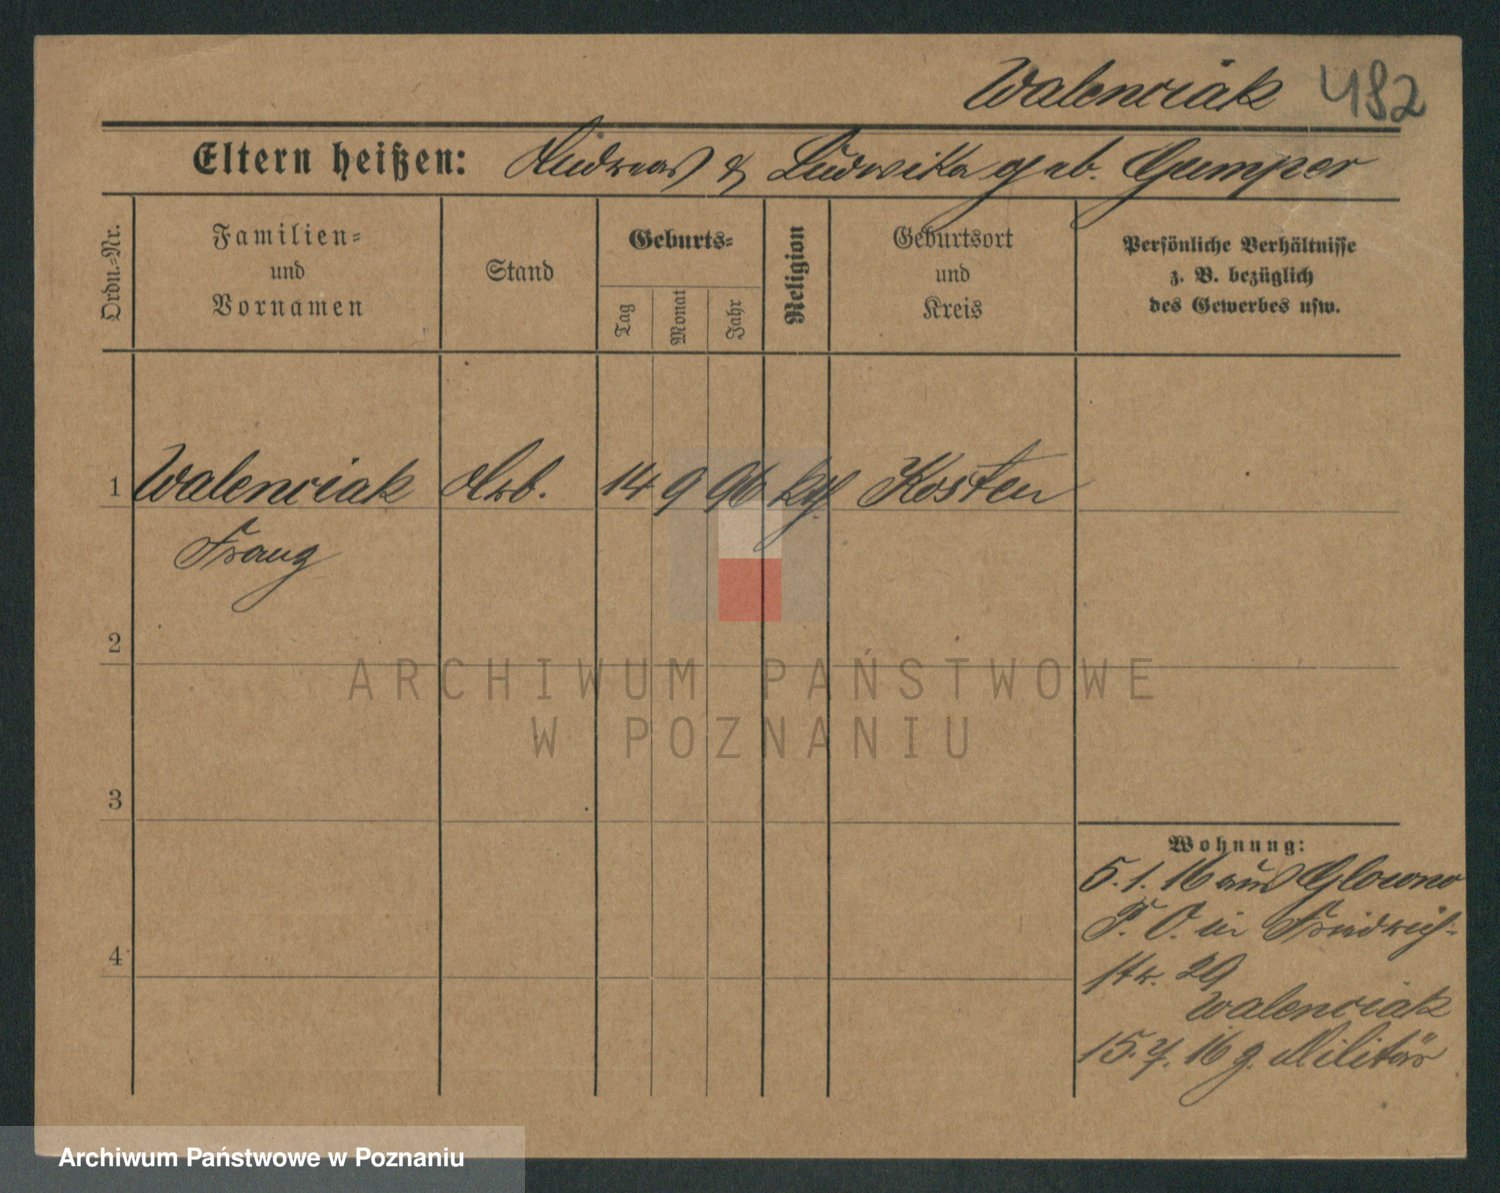 Walenciak 482
Eltern heißen: Andreas & Ludwika geb. Gumper
Ordn.-Nr.
Familien-
und
Vornamen
Stand
Geburts-
Tag
Monat
Jahr
Religion
Geburtsort
und
Kreis
Persönliche Verhältnisse
z. B. bezüglich
des Gewerbes usw.
1 Walenciak Arb. 14 9 96 kth. Kosten
Franz
2
3
4
Wohnung:
5. 1. 16 aus Glowno
P. O. in Friedrich-
str. 29
Walenciak
15. 7. 16 z. Militär
ARCHIWUM PAŃSTWOWE
W POZNANIU
Archiwum Państwowe w Poznaniu